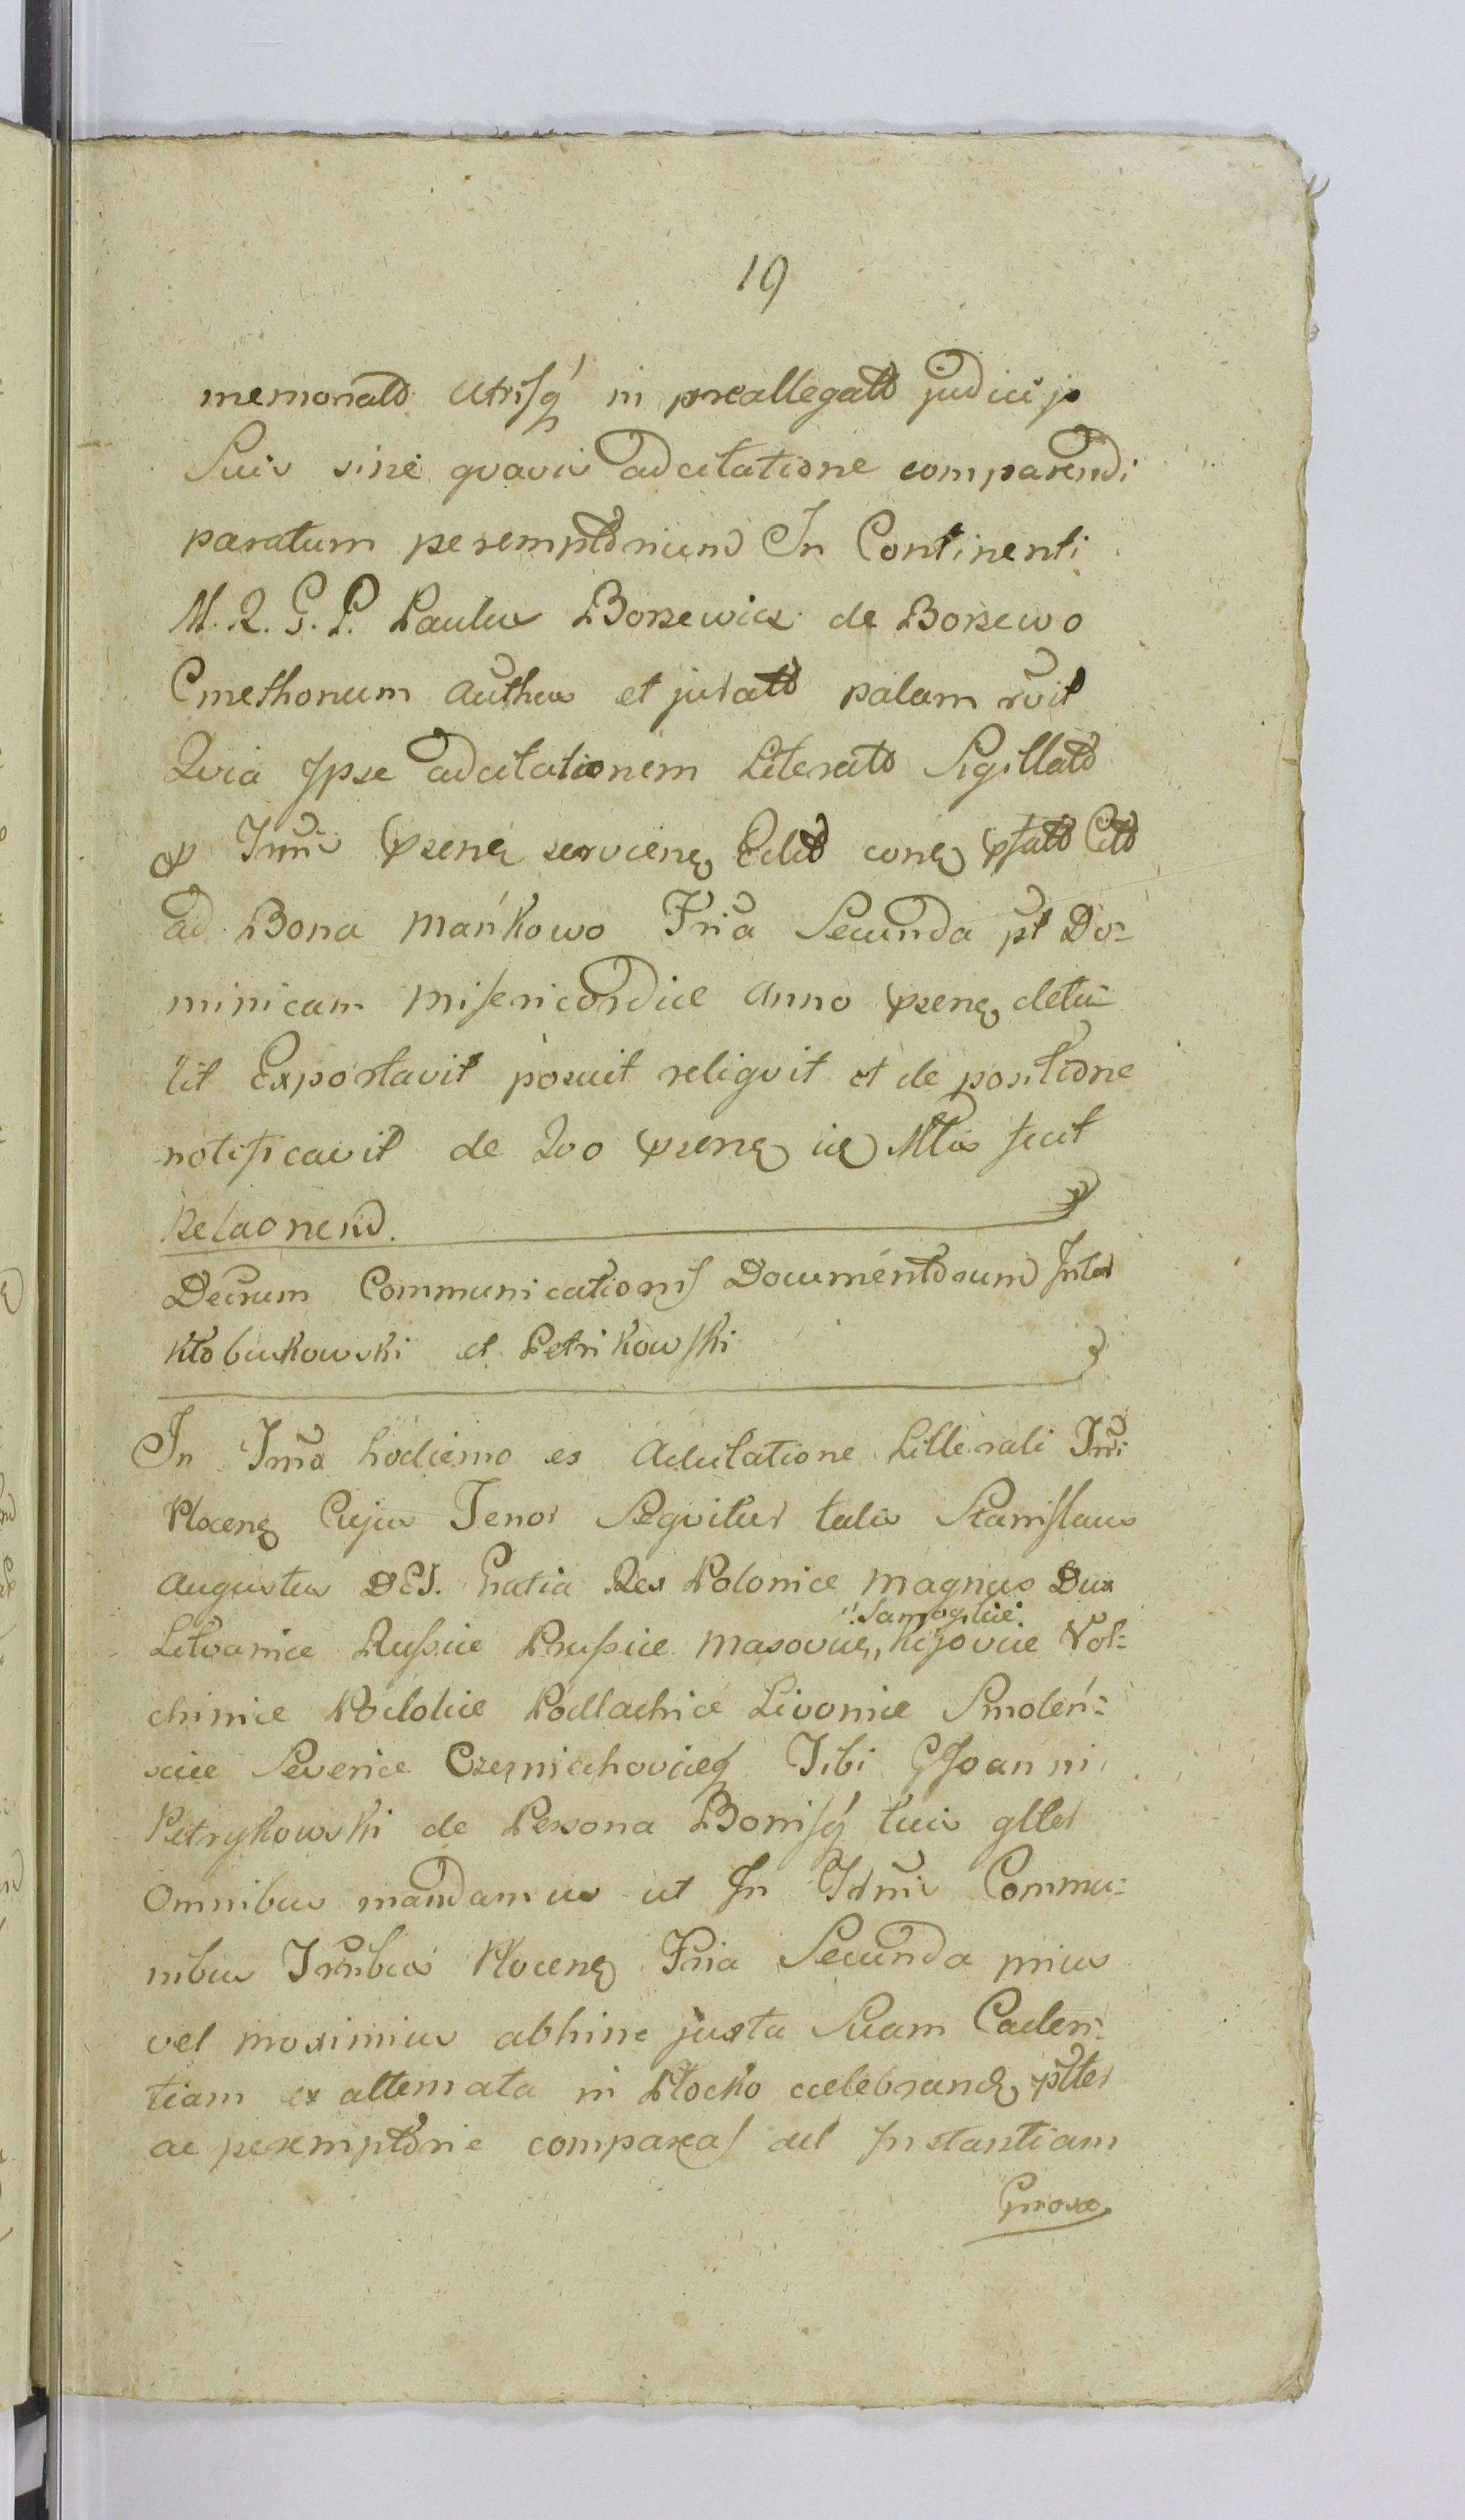 19
memorato utrisq in preallegato judicijs
Suis sine quavis adcitatione comparendi
paratum peremptorium In Continenti
M. R. G. P. Paulus Borzewicz de Borzewo
Cmethonum authus et jurato palam rvit
Qvia Ipse adcitationem Literato Sigillato
ex Trmi psenq servienq Edito conq pfato Cito
ad Bona Mańkowo Fria Secunda pt Do=
minicam Misericordiae anno psenq detu=
lit Exportavit posuit reliqvit et de positione
notificavit de Qvo psenq iq Mtio fecit
Relaonem.
Decrum Communicationis Documentorum Inter
Kłobukowski et Petrikowski
In Tmo hodierno ex Adcitatione Litterali Tmi
Plocenq Cujus Tenor Seqvitur talis Stanislaus
Augustus DEI. Gratia Rex Poloniae Magnus Dux
Litvaniae Russiae Prussiae Masoviae, Samogitiae, Kijoviae Vol=
chiniae Podoliae Podlachiae Livoniae Smolen=
sciae Severiae Czerniechoviaeq Tibi G Joanni
Petrykowski de Persona Bonisq tuis glter
Omnibus mandamus ut In Trmis Commu=
nibus Trribus Plocenq Fria Secunda prius
vel proximius abhinc juxta Suam Caden=
tiam ex alternata in Płocko celebrandq plter
ac peremptorie compareas ad Instantiam
Gnoso